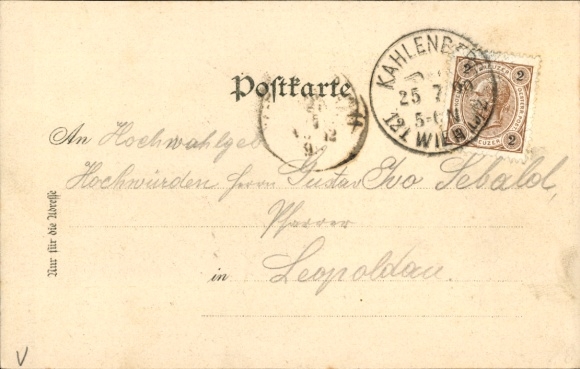 Postkarte
KAHLENBERG
25 7 00
5-6N
12/1 WIEN
2 2
2
An Hochwohlgeb
Hochwürden Herrn Gustav Ivo Sebald,
Pfarrer
in Leopoldau.
Nur für die Adresse
V